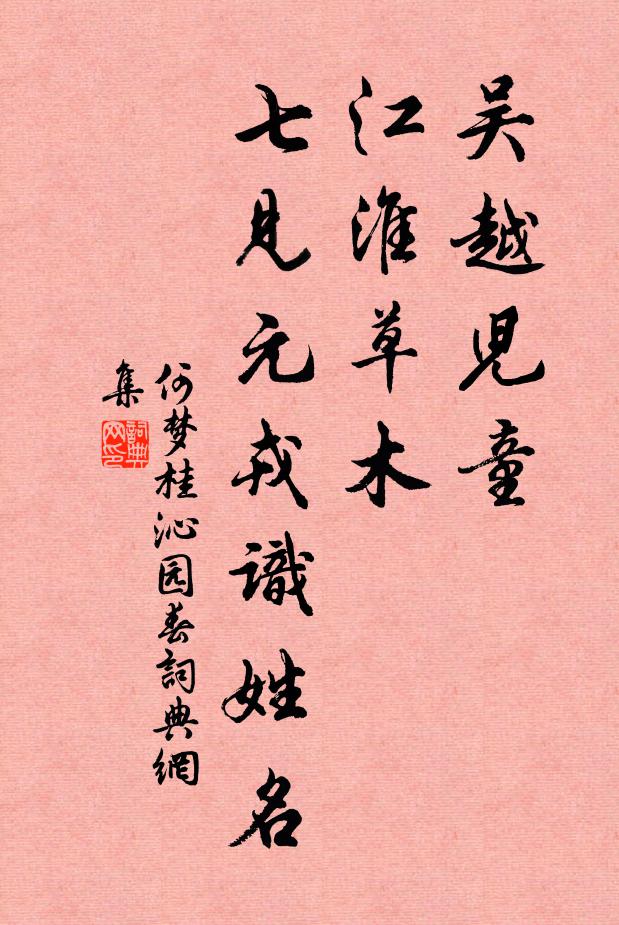 吴越児童
江淮草木
七見元戎識姓名
何梦桂沁园春詞典網
集
詞典
网印